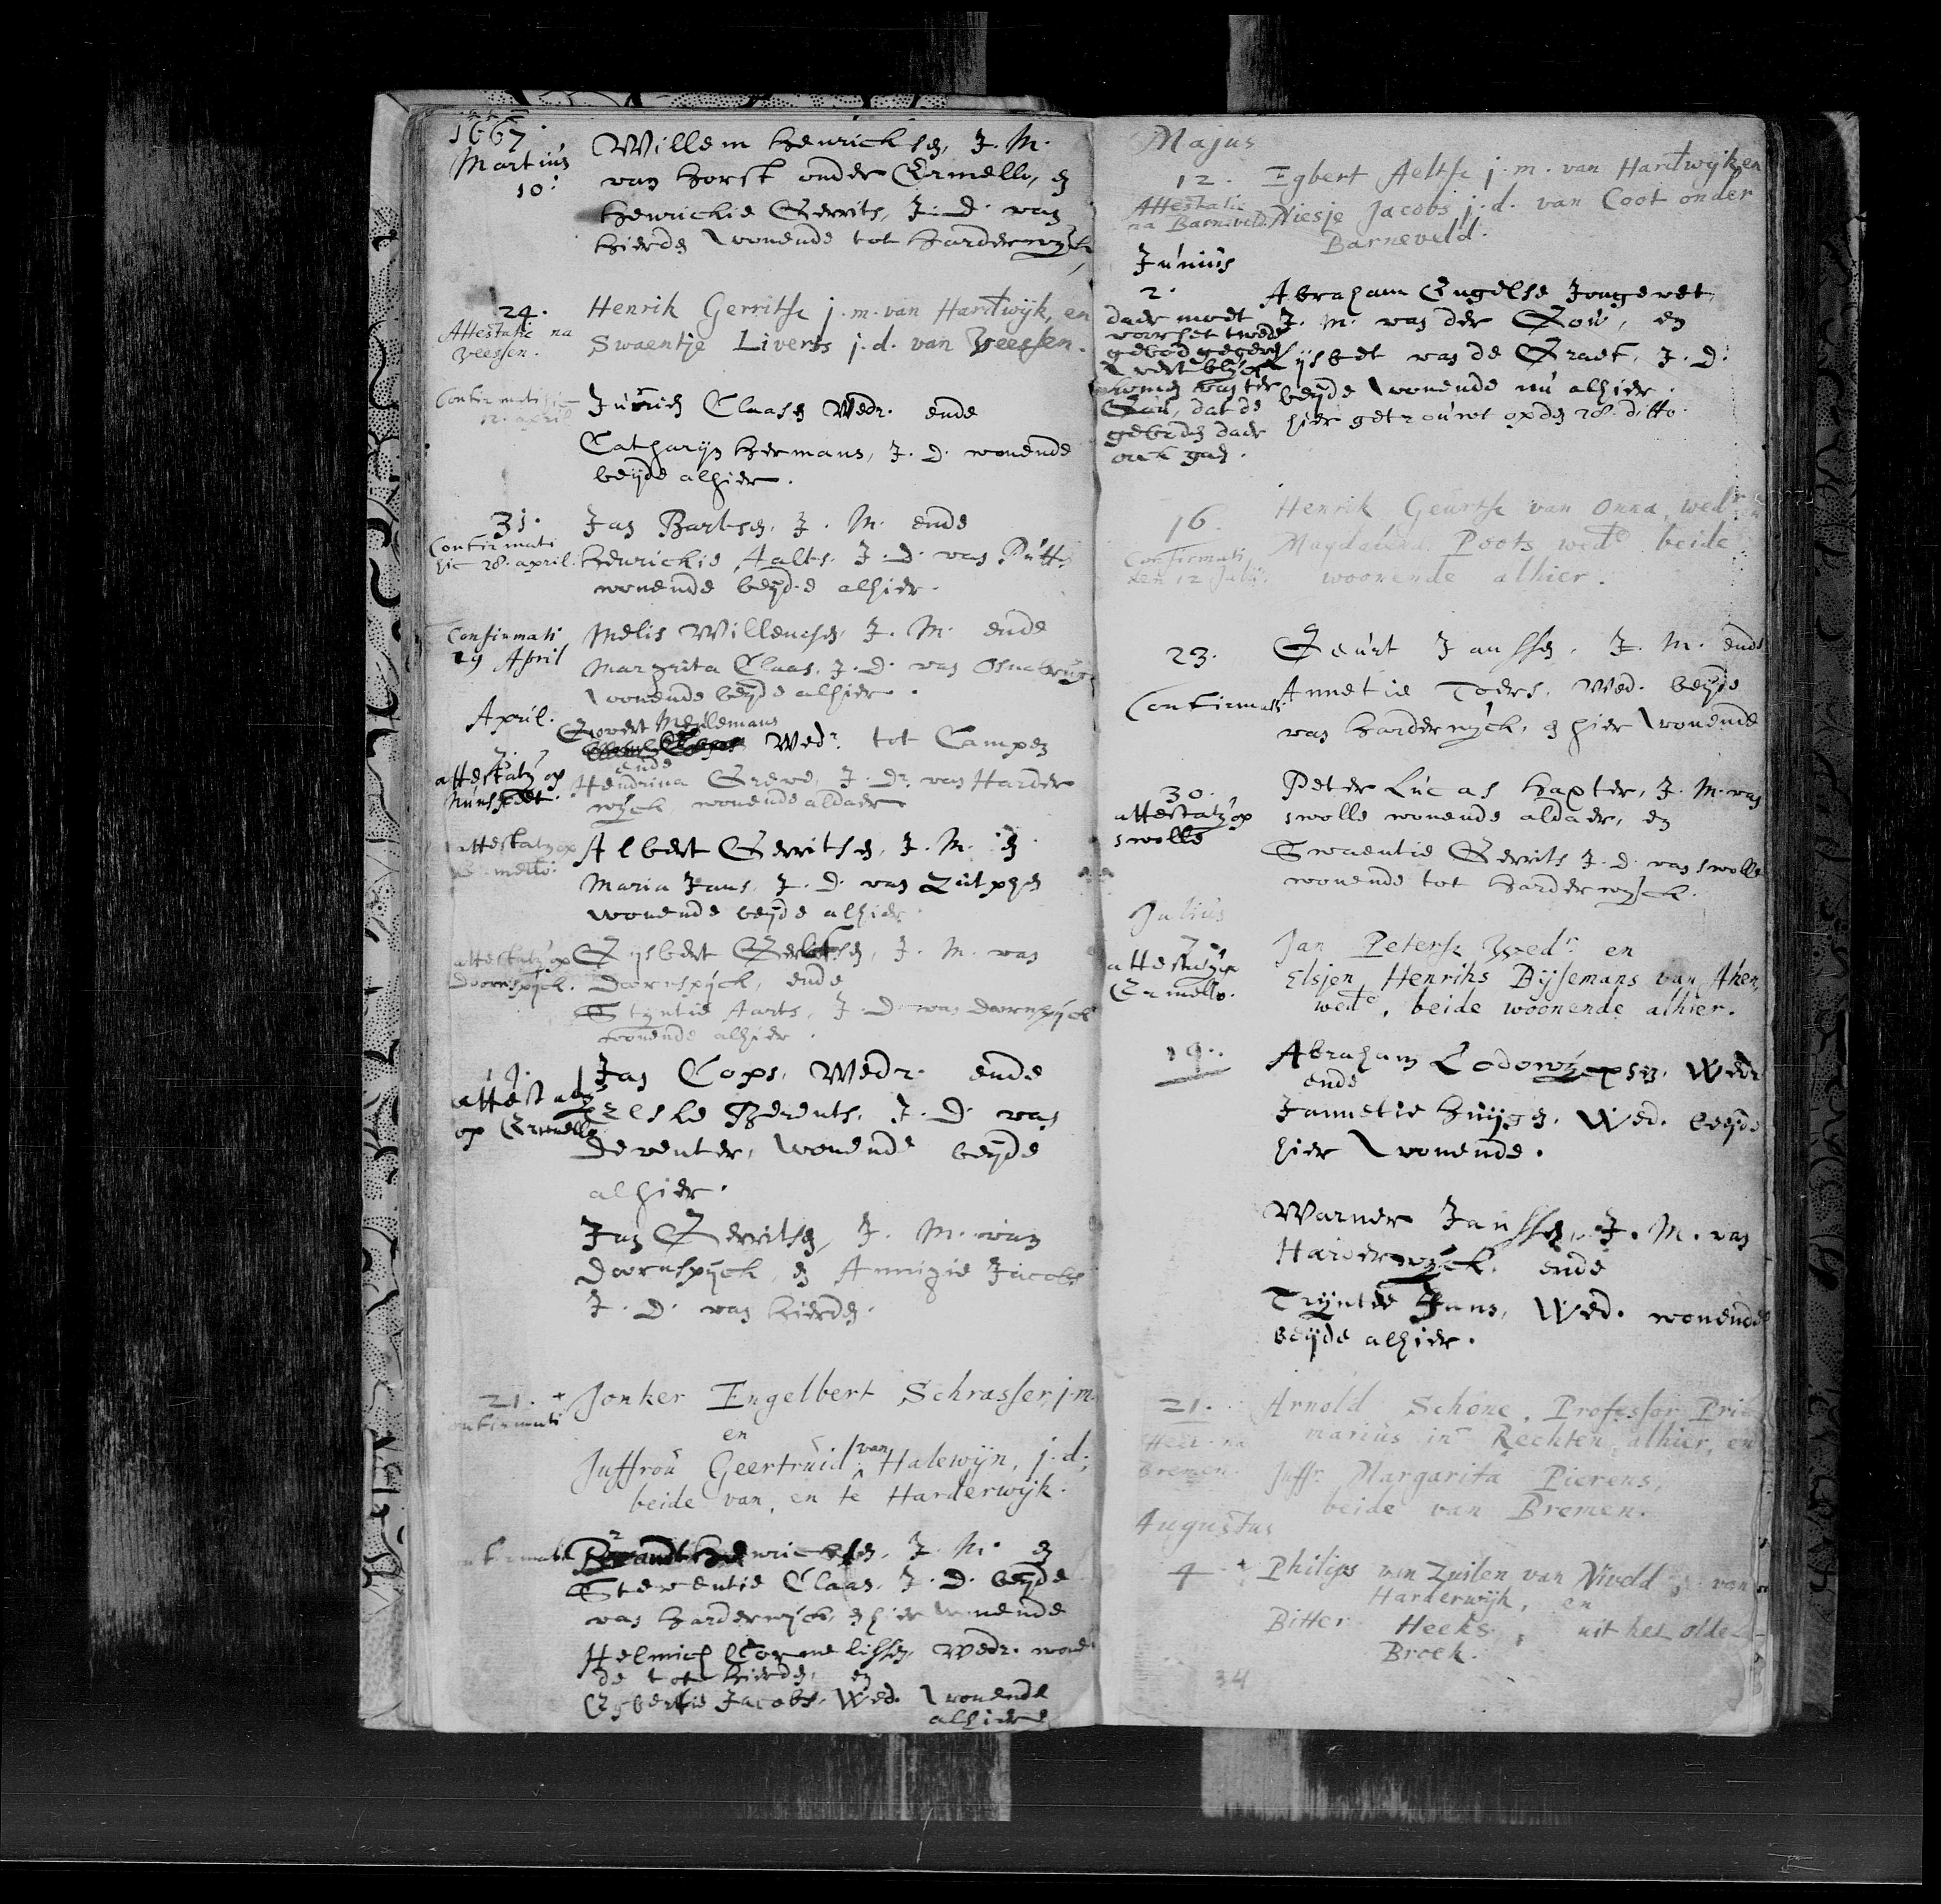 1667.
Martius
10.
Willem Henricksen, J. M.
van Horst onder Ermello, en
Henrickie Gerrits, J. D. van
Hierden wonende tot Harderwyck
24.
Attestatie na
Veessen.
Henrik Gerritse j. m. van Hardwijk, en
Swaentje Liverts j. d. van Veessen.
Confirmati hic
12. april
Jurrien Claasen Wedr. ende
Catharyn Hermans, J. D. wonende
beyde alhier.
31.
Confirmati
hic 28. april.
Jan Bartsen, J. M. ende
Henrickie Aalts, J. D. van Putt.
wonende beyde alhier.
Confirmati
29 April
Melis Willemsen, J. M. ende
Margrita Claas, J. D. van Osnabrugh
wonende beyde alhier.
April.
7.
attestaty op
Nunspeet.
Govert Meulemans
Wedr. tot Campen
ende
Hendrina Greve, J. Dr. van Harder
wyck wonende aldaer
attestaty op
Ermello.
Albert Gerritsen, J. M. en
Maria Jans, J. D. van Zutphen
wonende beyde alhier.
attestaty op
Doornspyck.
Gysbert Gerritsen, J. M. van
Doornspyck, ende
Styntie Aarts, J. D. van Doornspyck
wonende alhier.
attestaty
op Ermello
Jan Cops, Wedr. ende
Elske Berents, J. D. van
Deventer, wonende beyde
alhier.
Jan Gerritsen, J. M. van
Doornspyck, en Annigie Jacobs
J. D. van Hierden.
21. +
Confirmati
Jonker Engelbert Schrasser, j. m.
en
Juffrou Geertruid van Halewijn, j. d.;
beide van, en te Harderwijk.
Confirmati
Henricksen, J. M. en
Steventie Claas, J. D. beyde
van Harderwyck, en hier wonende
Helmich Cornelissen, Wedr. wonen
de tot Hierden, en
Egbertie Jacobs, Wed. wonende
alhier
Majus
12.
Attestatie
na Barneveld.
Egbert Aeltse j. m. van Hardwijk, en
Niesje Jacobs j. d. van Coot onder
Barneveld.
Junius
2.
daer moet
voor het twede
gebod gegeven
werd blyck
komen van ter
Gou, dat de
geboden daer
ock gaen.
Abraham Engelse Jongeret,
J. M. van der Gou, en
Lysbet van de Graef, J. D.
beyde wonende nu alhier.
hier getrouwt op den 28. ditto.
16.
Confirmati
den 12 July.
Henrik Geurtse van Onna, wedr
Magdalena Poots wede beide
woonende alhier.
23.
Confirmati
Geurt Janssen, J. M. ende
Annetie Toers, Wed. beyde
van Harderwyck, en hier wonende
30.
attestaty op
Swolle
Peter Lucas Haxter, J. M. van
Swolle wonende aldaer, en
Swaentie Gerrits J. D. van Swolle
wonende tot Harderwyck.
Julius
7.
attestaty op
Ermello.
Jan Peterse Wedr. en
Elsjen Henriks Dijsemans van Ahen,
wede, beide woonende alhier.
19.
Abraham Lodowycxsen, Wedr
ende
Jannetie Huygen, Wed. beyde
hier wonende.
Warner Janssen, J. M. van
Harderwyck. ende
Tryntie Jans, Wed. wonende
beyde alhier.
21.
Attest. na
Bremen.
Arnold Schöne, Professor Pri
marius in Rechten alhier, en
Juffr. Margarita Pierens,
beide van Bremen.
Augustus
4. +
Philips van Zuilen van Niveld, van
Harderwijk, en
Bitter Heeks, uit het olde
Broek.
34